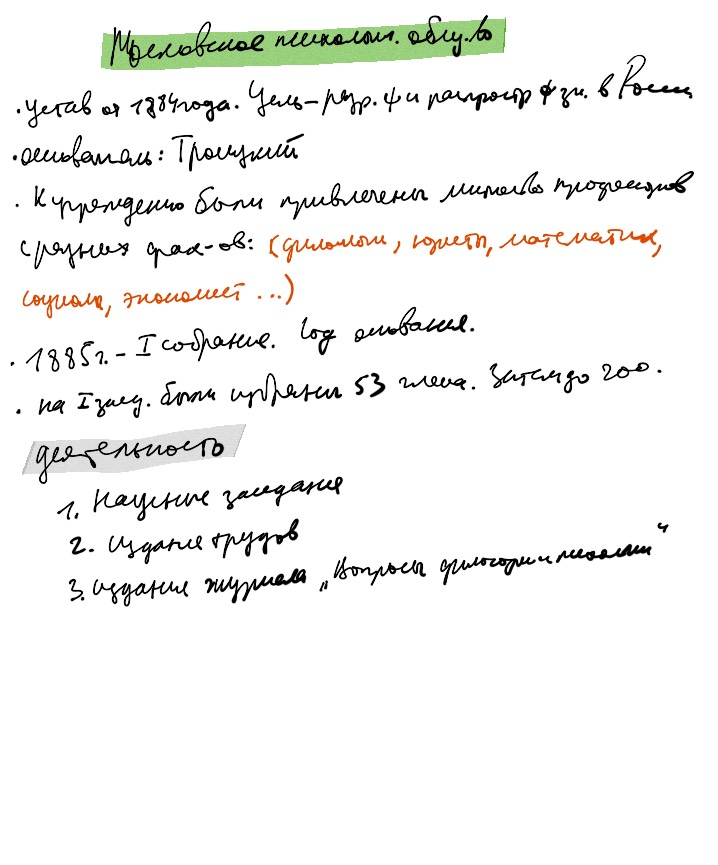 Московское психолог. общ-во
· Устав от 1884 года. Цель – разр. ψ и распростр ψ зн. в России
· основатель: Троицкий
· К учреждению были привлечены множество профессоров
с разных фак-ов: (филологи, юристы, математики,
социолог, экономист ...)
· 1885 г. – I собрание. Год основания.
· на I засед. были избраны 53 члена. Затем до 200.
деятельность
1. Научные заседания
2. издание трудов
3. издание журнала „Вопросы философии и психологии“